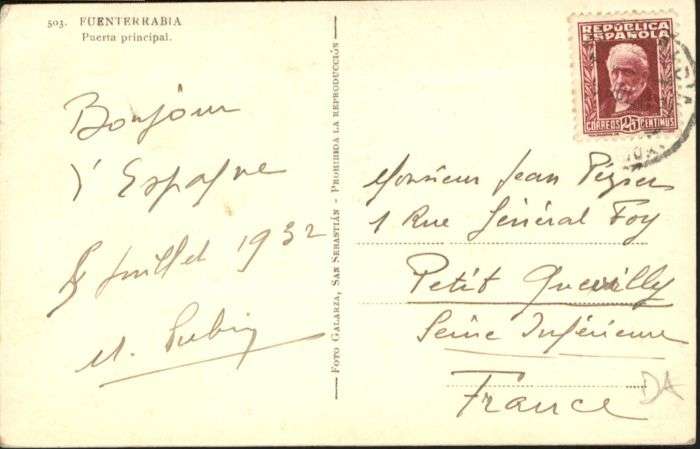 503. FUENTERRABIA
Puerta principal.
Bonjour
d'Espagne
Juillet 1932
FOTO GALARZA, SAN SEBASTIÁN - PROHIBIDA LA REPRODUCCIÓN
REPÚBLICA
ESPAÑOLA
CORREOS 25 CENTIMOS
Monsieur Jean
1 Rue Général Foy
Petit Quevilly
Seine Inférieure
France
DA